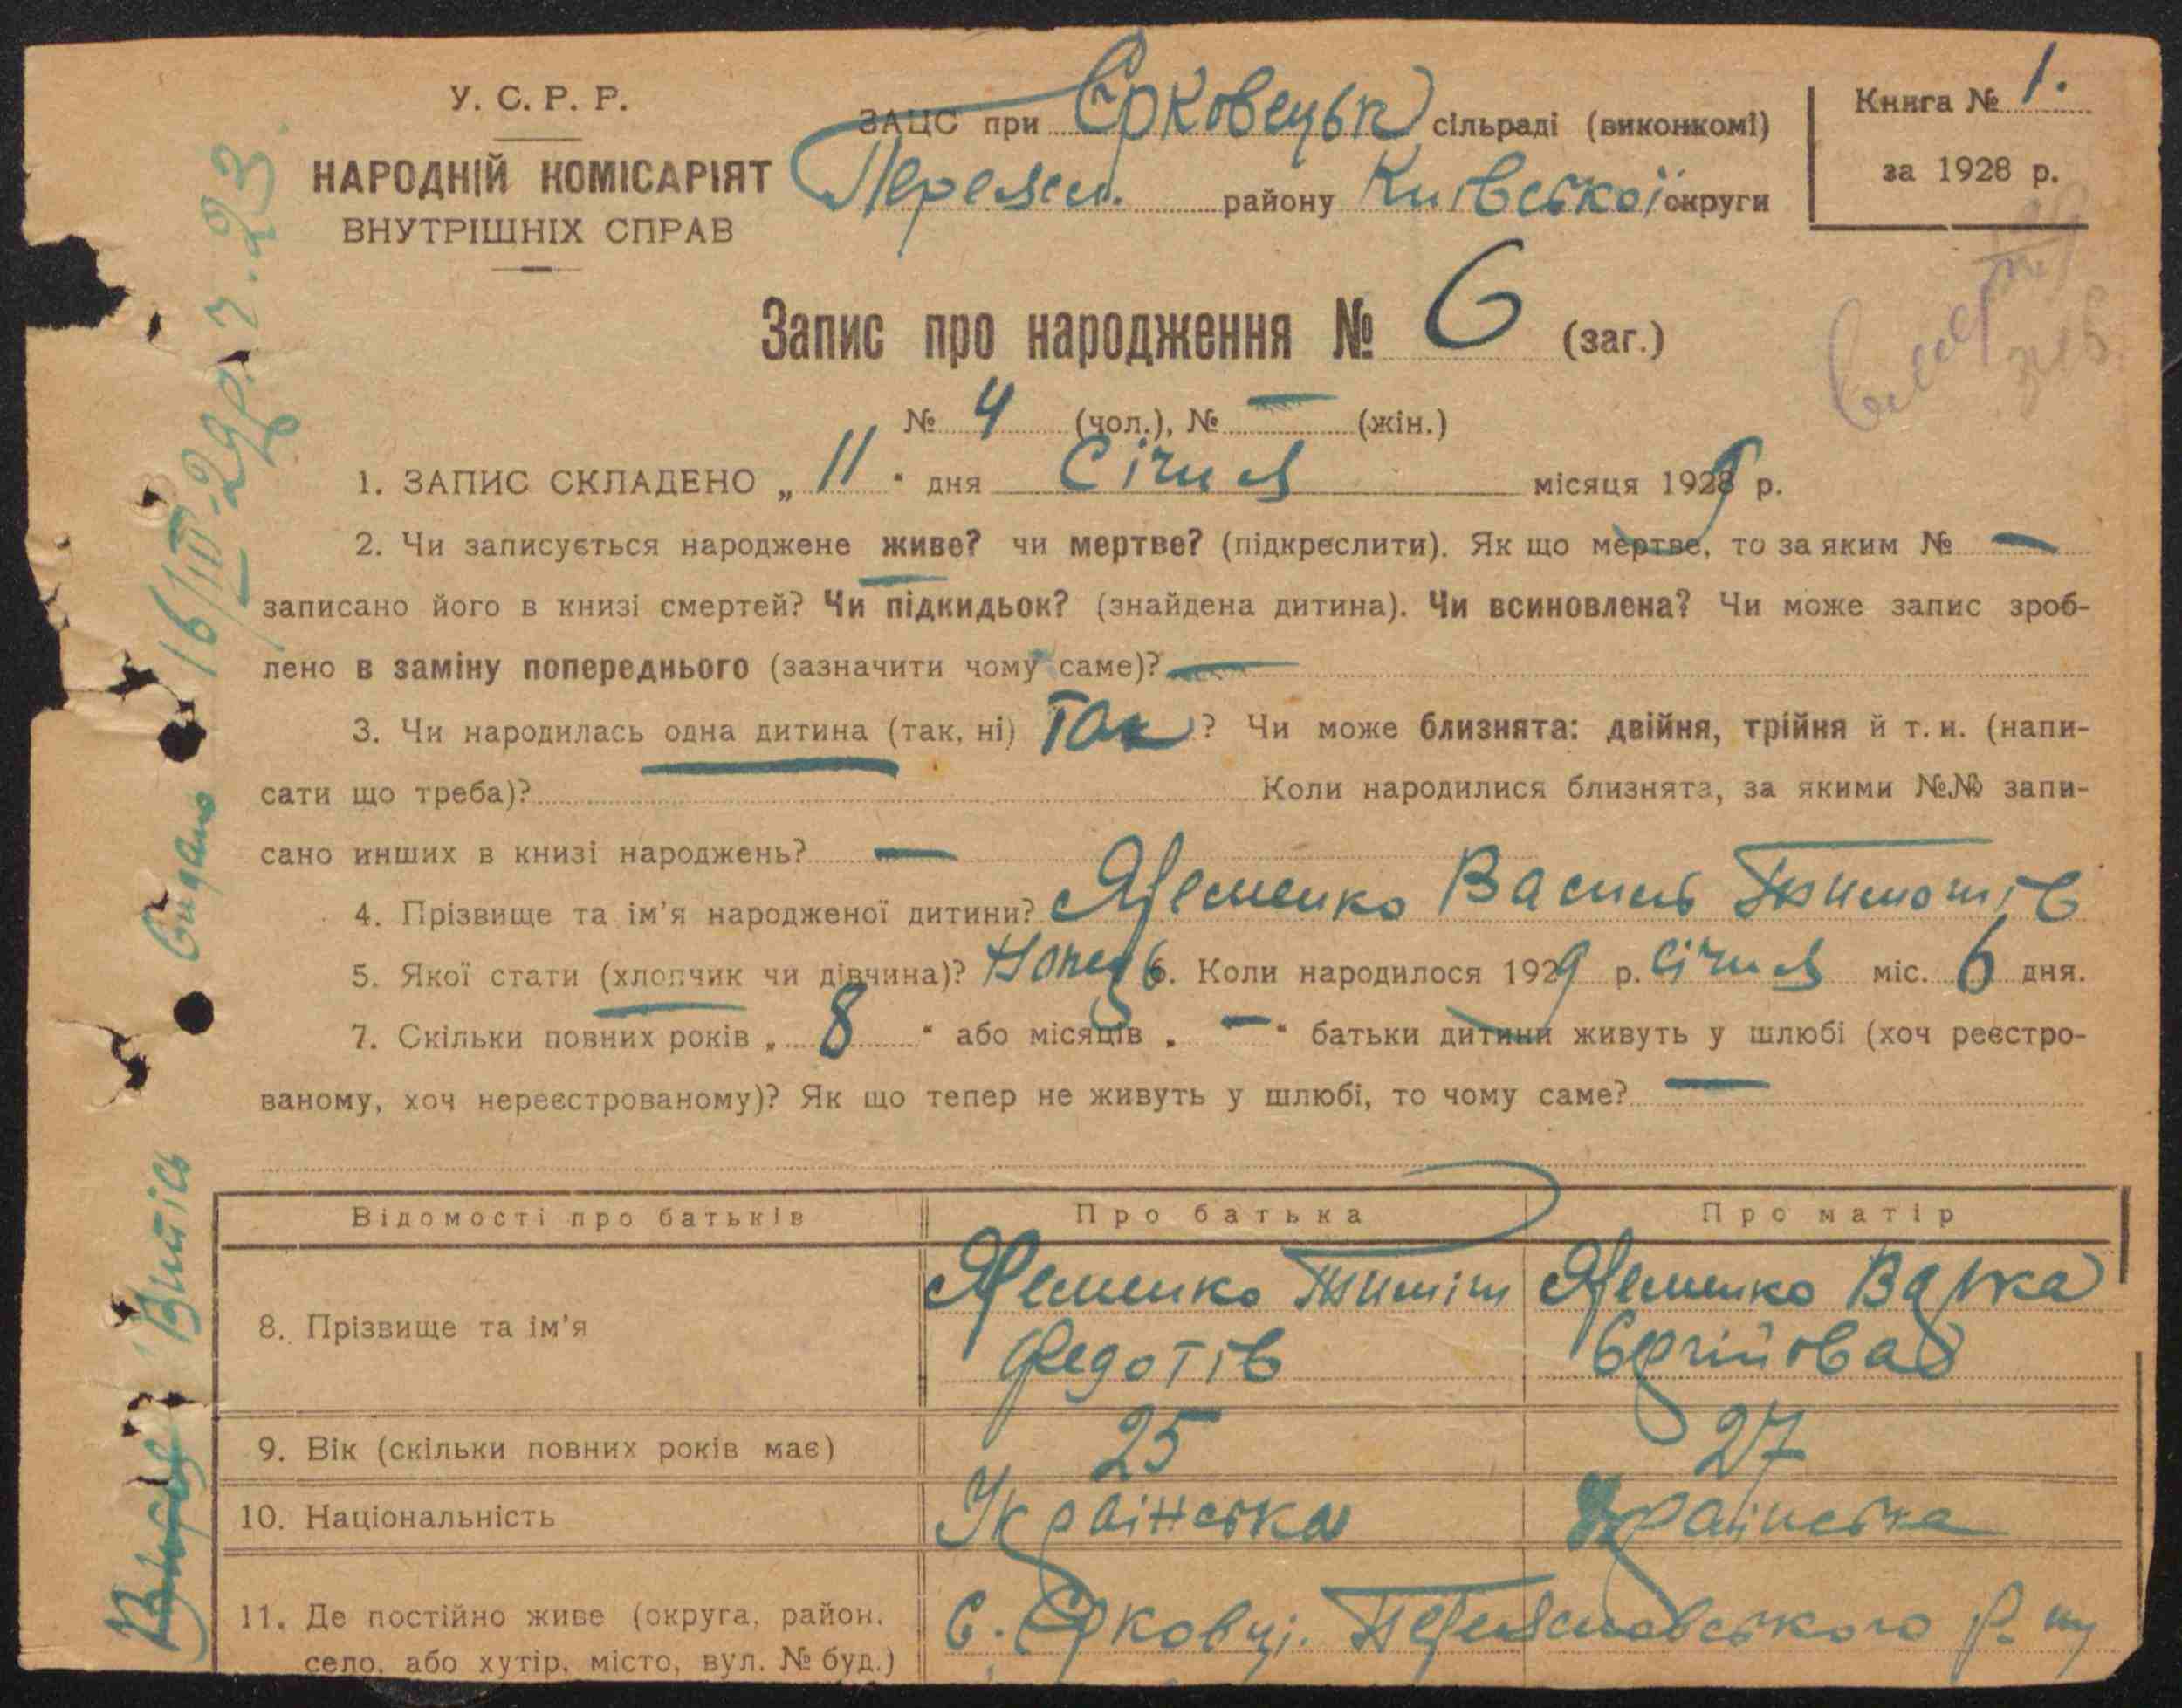 У. С. Р. Р.
НАРОДНІЙ КОМІСАРІЯТ
ВНУТРІШНІХ СПРАВ
ЗАЦС при Єрковецьк сільраді (виконкомі)
Переясл. району Київської округи
Книга № 1.
за 1928 р.
Запис про народження № 6 (заг.)
№ 4 (чол.), № — (жін.)
1. ЗАПИС СКЛАДЕНО „ 11 " дня Січня місяця 1929 р.
2. Чи записується народжене живе? чи мертве? (підкреслити). Як що мертве, то за яким № —
записано його в книзі смертей? Чи підкидьок? (знайдена дитина). Чи всиновлена? Чи може запис зроб-
лено в заміну попереднього (зазначити чому саме)? —
3. Чи народилась одна дитина (так, ні) Так? Чи може близнята: двійня, трійня й т. и. (напи-
сати що треба)? Коли народилися близнята, за якими №№ запи-
сано инших в книзі народжень? —
4. Прізвище та ім'я народженої дитини? Яременко Василь Тимотів
5. Якої стати (хлопчик чи дівчина)? 6. Коли народилося 1929 р. січня міс. 6 дня.
7. Скільки повних років „ 8 " або місяців „ — " батьки дитини живуть у шлюбі (хоч реєстро-
ваному, хоч нереєстрованому)? Як що тепер не живуть у шлюбі, то чому саме? —
Відомості про батьків Про батька Про матір
8. Прізвище та ім'я
Яременко Тиміш
Федотів
Яременко Варка
9. Вік (скільки повних років має) 25 27
10. Національність Українська Українська
11. Де постійно живе (округа, район,
село, або хутір, місто, вул. № буд.)
С. Єрковці. Переяславського р-ну
Видано 16/III-29р.
Витісь